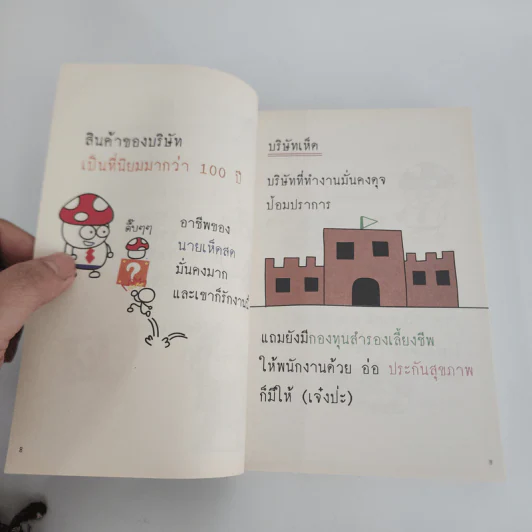 สินค้าของบริษัท
เป็นที่นิยมมากว่า 100 ปี
ดึ๊บๆๆ
?
อาชีพของ
นายเห็ดสด
มั่นคงมาก
และเขาก็รักงาน
8
บริษัทเห็ด
บริษัทที่ทำงานมั่นคงดุจ
ป้อมปราการ
แถมยังมีกองทุนสำรองเลี้ยงชีพ
ให้พนักงานด้วย อ่อ ประกันสุขภาพ
ก็มีให้ (เจ๋งปะ)